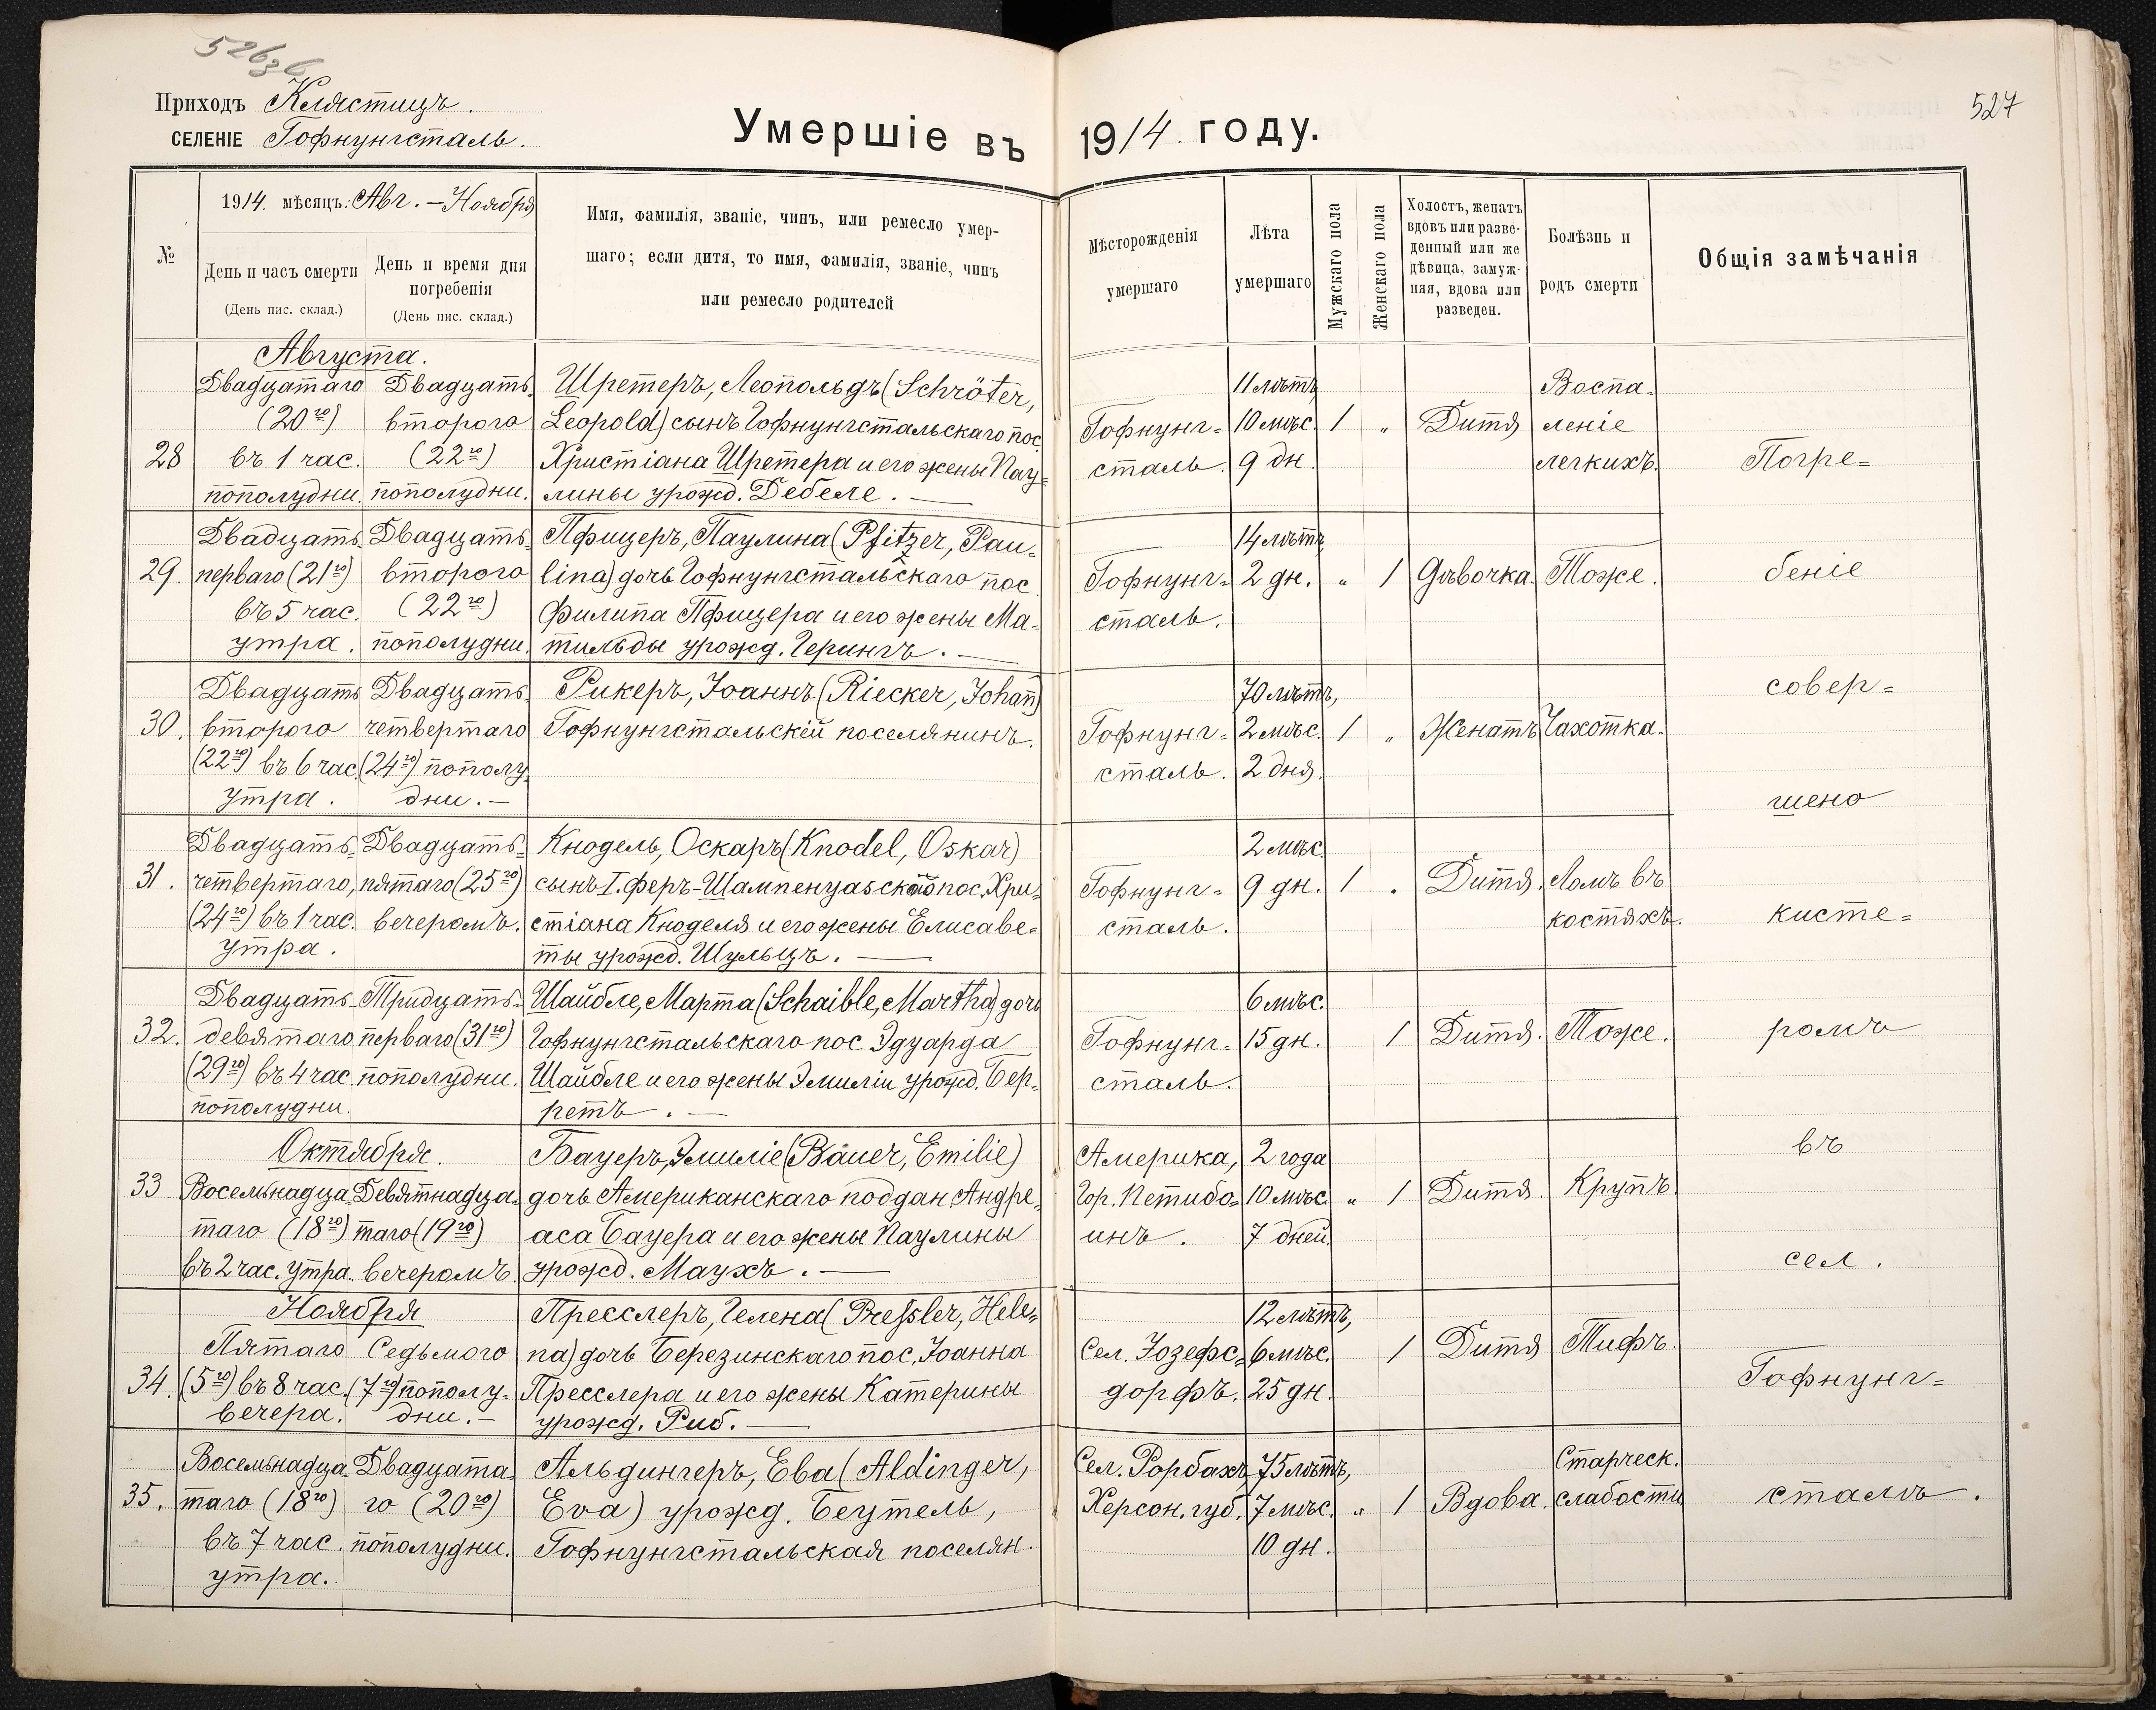 526зб
527
Приходъ Клястицъ.
СЕЛЕНІЕ Гофнунгсталь.
Умершіе въ 1914 году.
№
1914. мѣсяцъ: Авг. – Ноября
День и часъ смерти
(День пис. склад.)
День и время дня
погребенія
(День пис. склад.)
Имя, фамилія, званіе, чинъ, или ремесло умер-
шаго; если дитя, то имя, фамилія, званіе, чинъ
или ремесло родителей
Мѣсторожденія
умершаго
Лѣта
умершаго
Мужскаго пола
Женскаго пола
Холостъ, женатъ
вдовъ или разве-
денный или же
дѣвица, замуж-
няя, вдова или
разведен.
Болѣзнь и
родъ смерти
Общія замѣчанія
Августа.
28
Двадцатаго
(20го)
въ 1 час.
пополудни.
Двадцать-
второго
(22го)
пополудни.
Шретеръ, Леопольдъ (Schröter,
Leopold) сынъ Гофнунгстальскаго пос.
Христіана Шретера и его жены Пау-
лины урожд. Дебеле. —
Гофнунг=
сталь.
11 лѣтъ
10 мѣс.
9 дн.
1
"
Дитя
Воспа-
леніе
легкихъ.
29.
Двадцать-
перваго (21го)
въ 5 час.
утра.
Двадцать-
второго
(22го)
пополудни.
Пфицеръ, Паулина (Pfitzer, Pau-
lina) дочь Гофнунгстальскаго пос
Филипа Пфицера и его жены Ма-
тильды урожд. Герингъ. —
Гофнунг=
сталь.
14 лѣтъ
2 дн.
"
1
Дѣвочка.
Тоже.
30.
Двадцать
второго
(22го) въ 6 час.
утра.
Двадцать-
четвертаго
(24го) пополу-
дни. –
Рикеръ, Іоаннъ (Riecker, Johañ)
Гофнунгстальскій поселянинъ.
Гофнунг=
сталь.
70 лѣтъ,
2 мѣс.
2 дня.
1
"
Женатъ
Чахотка.
31.
Двадцать-
четвертаго,
(24го) въ 1 час.
утра.
Двадцать-
пятаго (25го)
вечеромъ.
Кнодель, Оскаръ (Knodel, Oskar)
сынъ I. феръ-Шампенуазскаго пос. Хри-
стіана Кноделя и его жены Елисаве-
ты урожд. Шульцъ. —
Гофнунг=
сталь.
2 мѣс.
9 дн.
1
.
Дитя.
Ломъ въ
костяхъ.
32.
Двадцать-
девятаго
(29го) въ 4 час
пополудни.
Тридцать-
перваго (31го)
пополудни.
Шайбле, Марта (Schaible, Martha) дочь
Гофнунгстальскаго пос Эдуарда
Шайбле и его жены Эмиліи урожд. Бер-
ретъ. —
Гофнунг=
сталь.
6 мѣс.
15 дн.
1
Дитя.
Тоже.
Октября.
33
Восемьнадца-
таго (18го)
въ 2 час. утра.
Девятнадца-
таго (19го)
вечеромъ.
Бауеръ, Эмиліе (Bauer, Emilie)
дочь Американскаго поддан Андре-
аса Бауера и его жены Паулины
урожд. Маухъ. —
Америка,
Гор. Петибо=
инъ.
2 года
10 мѣс.
7 дней.
"
1
Дитя.
Крупъ.
Ноября
34.
Пятаго
(5го) въ 8 час.
вечера.
Седьмого
(7го) пополу-
дни. –
Пресслеръ, Гелена (Pressler, Hele-
na) дочь Березинскаго пос. Іоанна
Пресслера и его жены Катерины
урожд. Риб. —
Сел. Іозефс-
дорфъ.
12 лѣтъ,
6 мѣс.
25 дн.
1
Дитя
Тифъ.
35.
Восемьнадца-
таго (18го)
въ 7 час.
утра.
Двадцата-
го (20го)
пополудни.
Альдингеръ, Ева (Aldinger,
Eva) урожд. Беутель,
Гофнунгстальская поселян.
Сел. Рорбахъ
Херсон. губ.
75 лѣтъ,
7 мѣс.
10 дн.
"
1
Вдова.
Старческ.
слабости
Погре=
беніе
совер=
шено
кисте=
ромъ
въ
сел.
Гофнунг=
сталь.